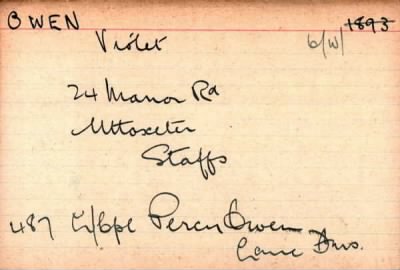 OWEN 1893
Violet 6/W/
24 Manor Rd
Uttoxeter
Staffs
487 L/Cpl Percy Owen